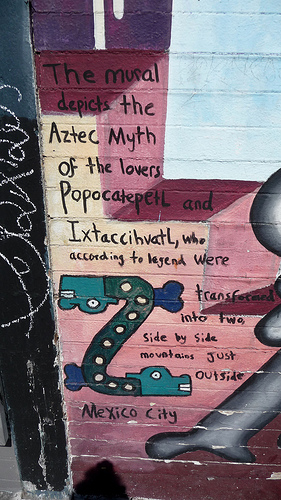 The mural
depicts the
Aztec Myth
of the lovers
Popocatepetl and
Ixtaccihuatl, who
according to legend were
transformed
into two,
side by side
mountains just
outside
Mexico City